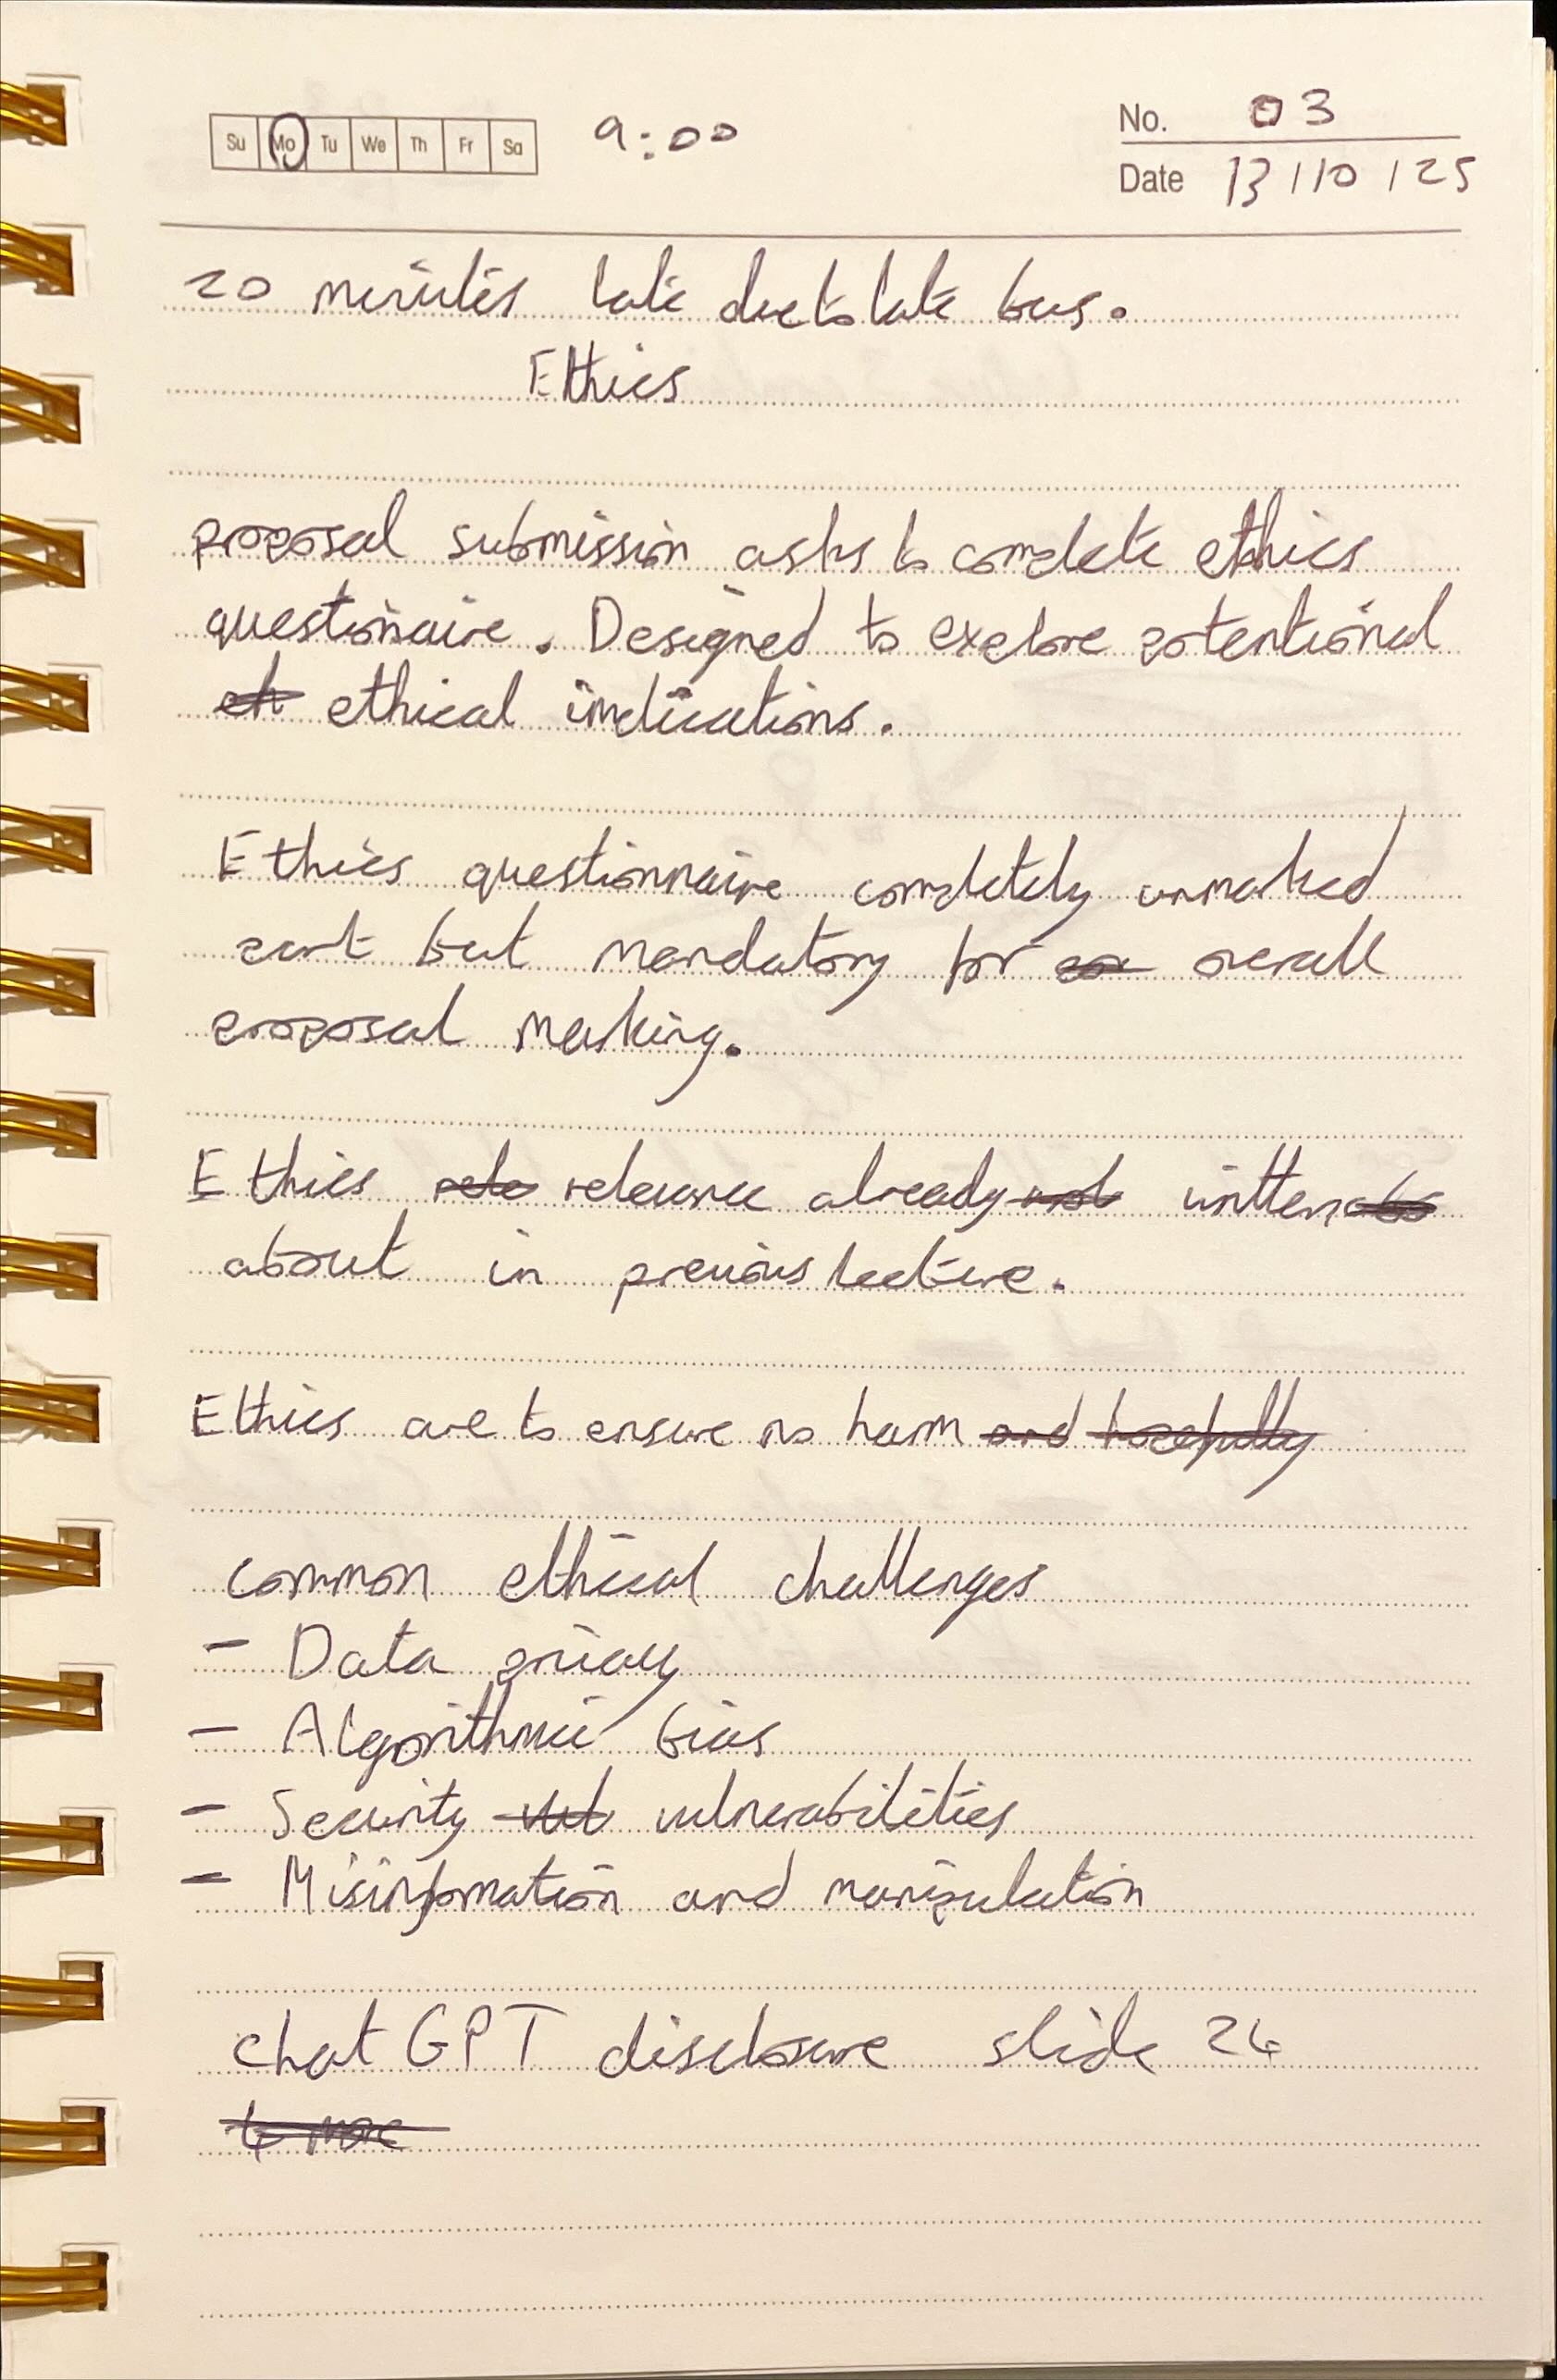 Su Mo Tu We Th Fr Sa 9:00 No. 03
Date 13/10/25
20 minutes late due to late bus.
Ethics
proposal submission asks to complete ethics
questionaire. Designed to explore potentional
ethical implications.
Ethics questionnaire completely unmarked
part but mandatory for overall
proposal marking.
Ethics relevance already written
about in previous lecture.
Ethics are to ensure no harm and hopefully
common ethical challenges
- Data privacy
- Algorithmic bias
- Security vulnerabilities
- Misinformation and manipulation
chat GPT disclosure slide 24